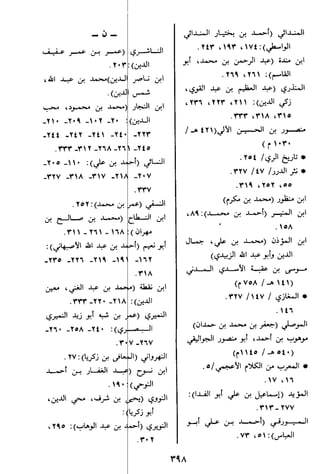 المندائي (أحمد بن بختيار المندائي
الواسطي): ١٧٤، ١٩٣، ٢٤٣.
ابن مندة (عبد الرحمن بن محمد، أبو
القاسم): ٢٦١، ٢٦٩.
المنذري (عبد العظيم بن عبد القوي،
زكي الدين): ٢١١، ٢٢٣، ٢٣٦،
٣١٥، ٣١٨، ٣٣٣.
منصور بن الحسين الآبي (٤٢١هـ /
١٠٣٠ م)
* تاريخ الري/ ٢٥٤.
* نثر الدرر/ ٤٧، ٣٢٧.
٥٥، ٢٥٢، ٣١٩.
ابن منظور (محمد بن مكرم)
ابن المنير (أحمد بن محمد): ٨٩،
١٥٨.
ابن المؤذن (علي بن محمد، جمال
الدين أبو عبد الله الزبيدي)
موسى بن عقبة الأسدي المدني
(١٤١ هـ / ٧٥٨ م)
* المغازي / ١٤٧، ٣٢٧.
١٤٦.
الموصلي (جعفر بن محمد بن حمدان)
موهوب بن أحمد، أبو منصور الجواليقي
(٥٤٠ هـ / ١١٤٥م)
* المعرب من الكلام الأعجمي/ ٥.
١٦، ١٧.
المؤيد (إسماعيل بن علي أبو الفدا):
٢٧٧-٣١٣.
الميورقي (أحمد بن علي أبو
العباس): ٥١، ٧٣.
- ن -
الناشري (عفيف
الدين): ٢٠٣.
ابن ناصر الدين (محمد بن عبد الله،
شمس الدين).
ابن النجار (محمد بن محمود، محب
الدين): ٢٠-١٠٢-٢٠٩-٢١٠-
٢٢٣-٢٤٠-٢٤١-٢٤٢-٢٤٤-
٢٤٥-٢٦١-٢٦٨-٣١٢-٣٣٣.
النسائي (أحمد بن علي): ١١٠-٢٠٥-
٢٠٧-٢١٨-٣١٧-٣١٨-٣٢٧-
٣٣٧.
النسفي (عمر بن محمد): ٢٥٢.
ابن النطاح (محمد بن صالح بن
مهران): ١٦٨-٢٦١-٣١١.
أبو نعيم (أحمد بن عبد الله الأصبهاني):
١٦٢-١٩١-٢١٩-٢٢٦-٢٣٥-
٣١٨.
ابن نقطة (محمد بن عبد الغني، معين
الدين): ٢١٨-٢٢٠-٣٣٣.
النميري (عمر بن شبه أبو زيد النميري
البصري): ٢٤٠-٢٥٨-٢٦٠-
٢٦٧-٣٠٧.
النهرواني (المعافى بن زكريا): ٢٧.
ابن نوح (عبد الغفار بن أحمد
التوحي): ١٩٠.
النووي (يحيى بن شرف، محي الدين،
أبو زكريا):
النويري (أحمد بن عبد الوهاب): ٢٩٥،
٣٠٢.
٣٩٨